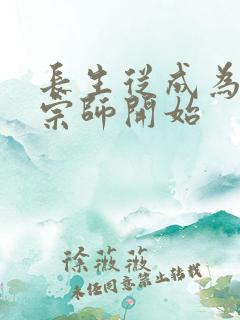 長生從成為
宗師開始
徐薇薇
未经同意禁止转载